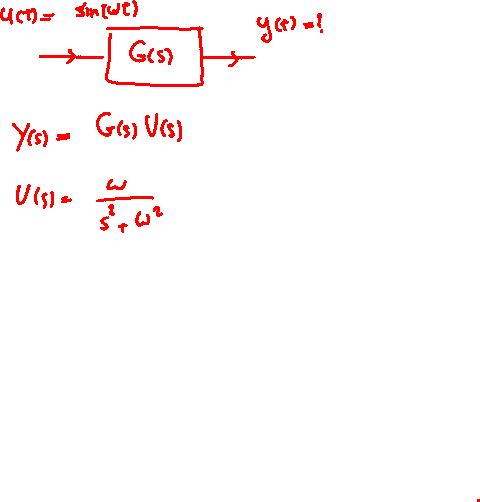 u(t) = sin(ωt)
y(t) = ?
G(s)
Y(s) = G(s) U(s)
U(s) = ω / s² + ω²